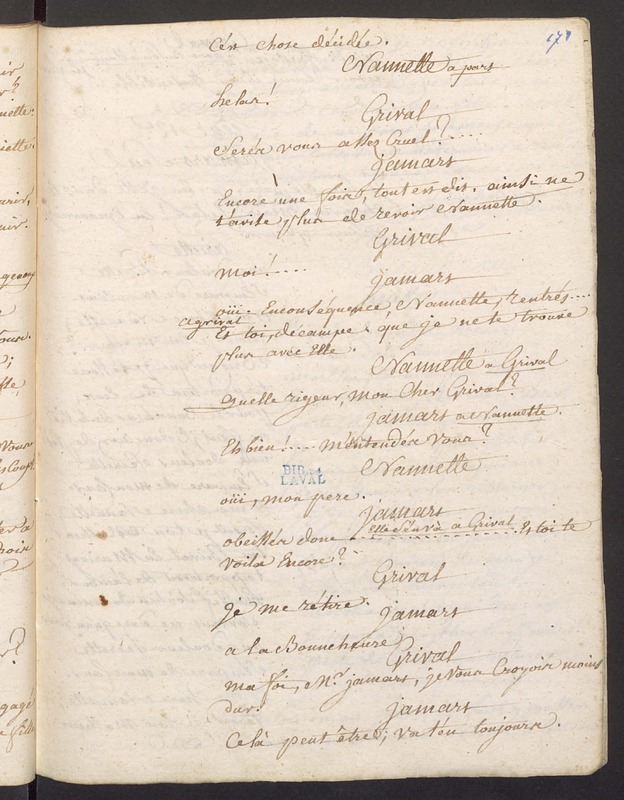 C'est chose décidée.
171
Nannette a part
helas!
Grival
Seréz vous assés Cruel?....
jamars
Encore une fois, tout est dit. ainsi ne
t'avise plus de revoir Nannette.
Grival
moi!....
jamars
oüi. Enconséquence, Nannette, rentrés....
agrival
Et toi, décampe. que je ne te trouve
plus avec Elle.
Nannette a Grival
quelle rigeur, mon Cher Grival?
jamars a Nannette.
Eh bien!.... m'entendéz vous?
Nannette
BIB.
LAVAL
oüi, mon pere.
jamars
Elle s'en va a Grival
obeissés donc ........ Et toi te
voila Encore?
Grival
je me rétire.
jamars
a la Bonneheure
Grival
ma foi, Mr. jamars, je vous Croyois moins
dur.
jamars
Celà peut être; va t'en toujours.